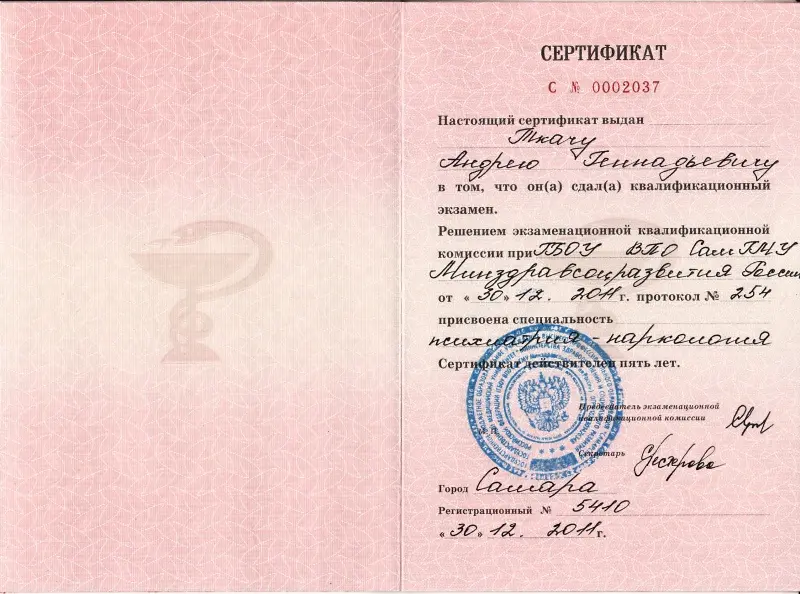 СЕРТИФИКАТ
С № 0002037
Настоящий сертификат выдан
Ткачу
Андрею Геннадьевичу
в том, что он(а) сдал(а) квалификационный
экзамен.
Решением экзаменационной квалификационной
комиссии при ГБОУ ВПО СамГМУ
Минздравсоцразвития России
от «30» 12. 2011 г. протокол № 254
присвоена специальность
психиатрия - наркология
Сертификат действителен пять лет.
Председатель экзаменационной
квалификационной комиссии
М.П.
Секретарь
Город Самара
Регистрационный № 5410
«30» 12. 2011 г.